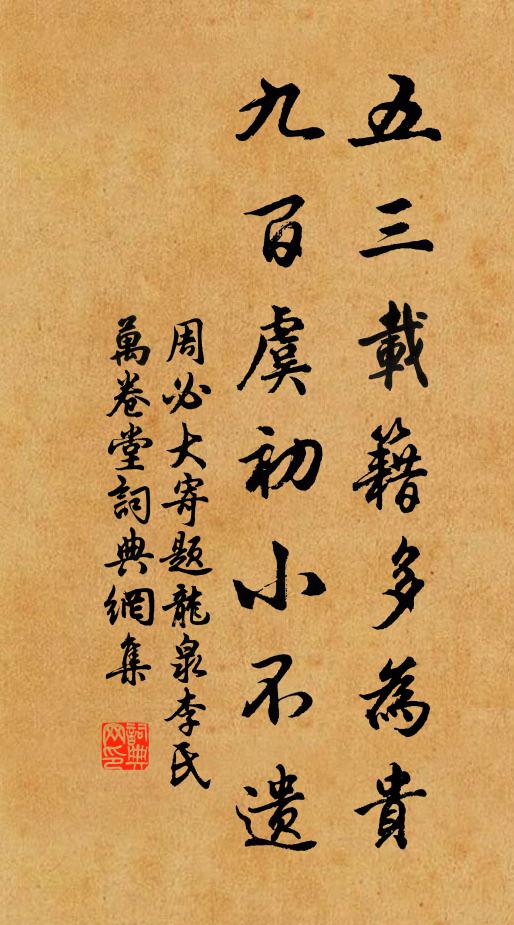 五三載籍多為貴
九百虞初小不遺
周必大寄題龍泉李氏
萬卷堂詞典網集
詞典網印